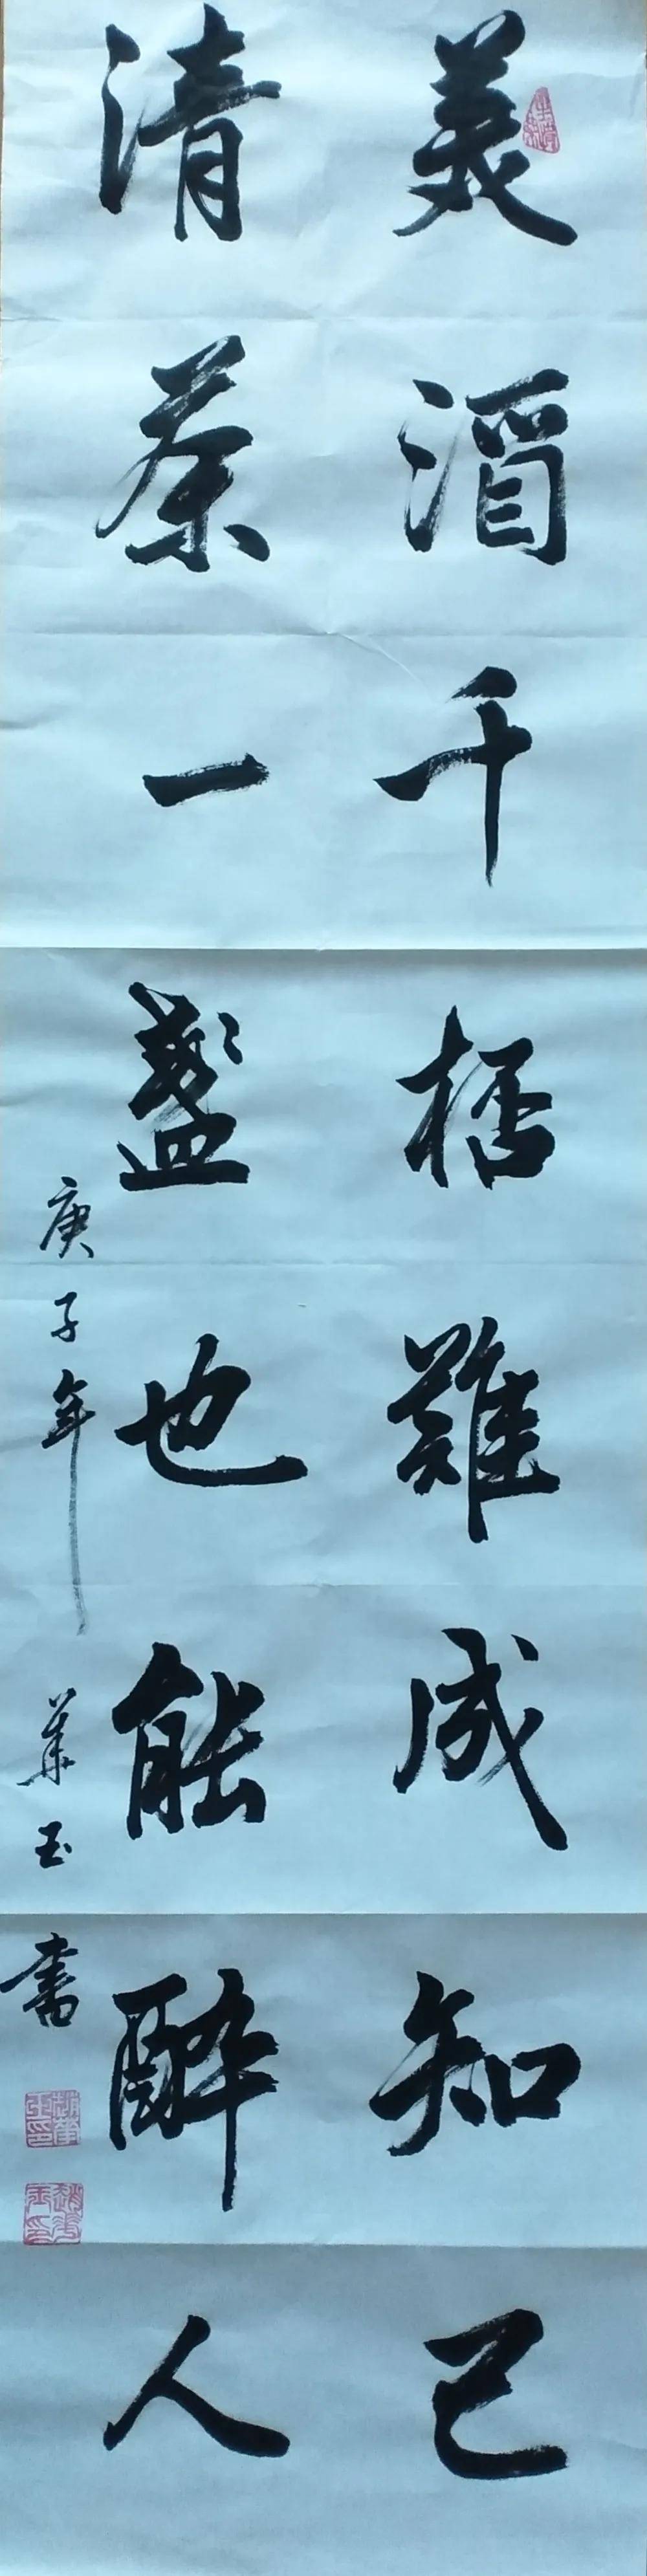 美酒千杯難成知己
清茶一盞也能醉人
庚子年 華玉書